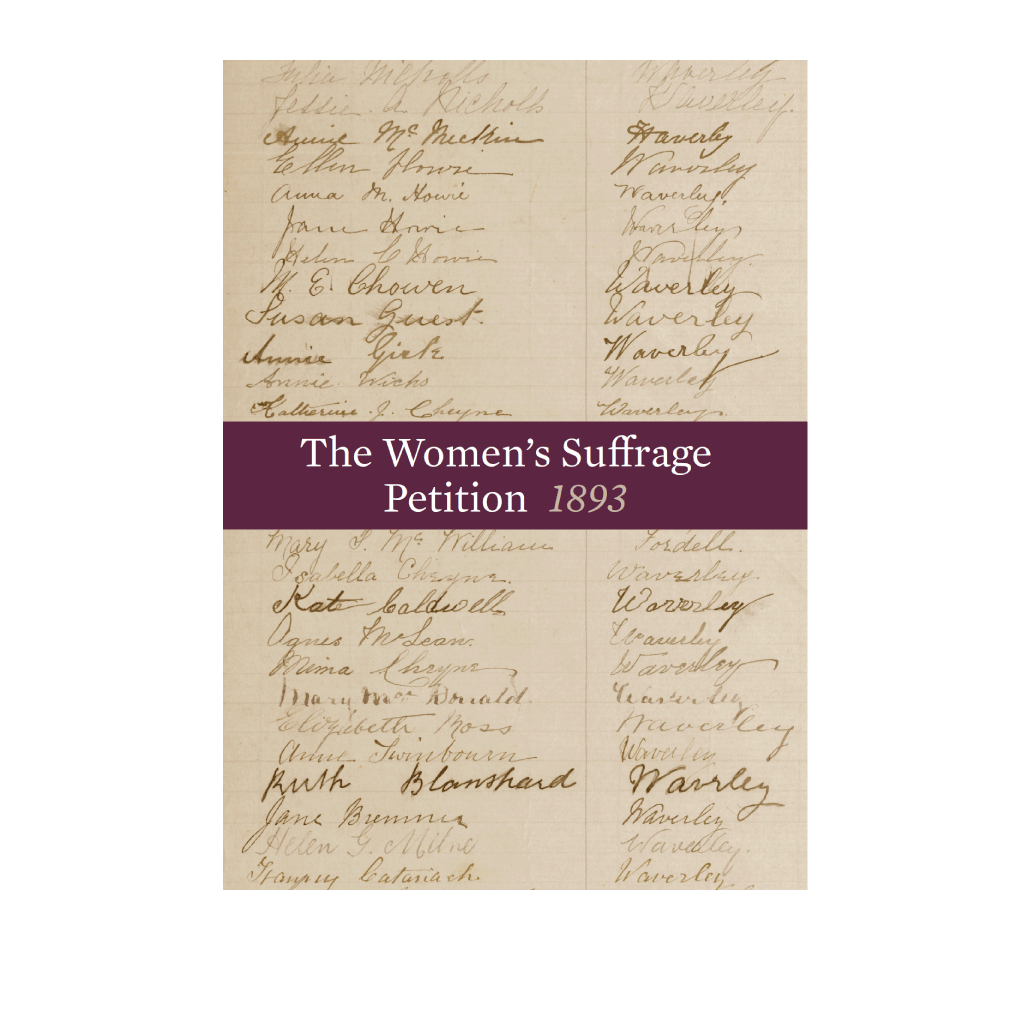 Julia Nicholls Waverley
Jessie. A Nicholls Waverley.
Annie McMeekin Waverly
Ellen Howie Waverley
Anna M. Howie Waverley.
Jane Howie Waverley
Helen C Howie Waverley.
M. E. Chowen Waverley
Susan Guest. Waverley
Annie Waverley
Annie Wicks Waverley
Katherine. J. Cheyne Waverley.
The Women's Suffrage
Petition 1893
Mary McWilliam Fordell.
Isabella Cheyne. Waverley.
Kate Caldwell Waverley
Agnes McLean. Waverley
Mima Cheyne Waverley
Mary MacDonald. Waverley
Elizabeth Ross Waverley
Anne Swinbourn Waverley
Ruth Blanshard Waverley
Jane Bremner Waverley
Helen G. Milne Waverley.
Waverley